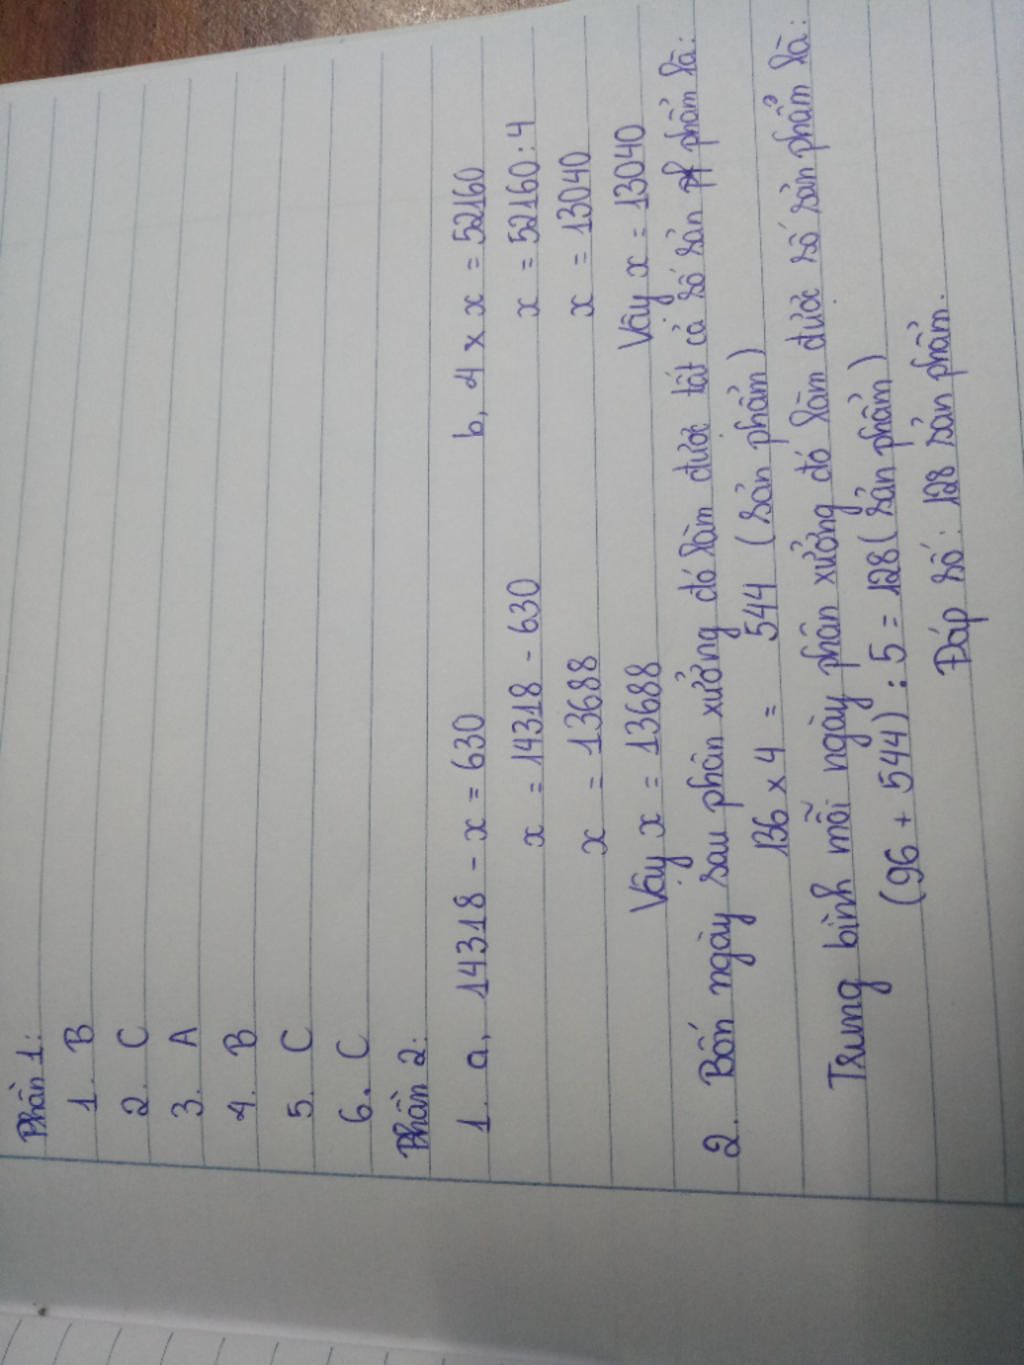 Phần 1:
1. B
2. C
3. A
4. B
5. C
6. C
Phần 2:
1. a, 14318 - x = 630 b, 4 x x = 52160
x = 14318 - 630 x = 52160 : 4
x = 13688 x = 13040
Vậy x = 13688 Vậy x = 13040
2. Bốn ngày sau phân xưởng đó làm được tất cả số sản phẩm là:
136 x 4 = 544 (sản phẩm)
Trung bình mỗi ngày phân xưởng đó làm được số sản phẩm là:
(96 + 544) : 5 = 128 (sản phẩm)
Đáp số: 128 sản phẩm.